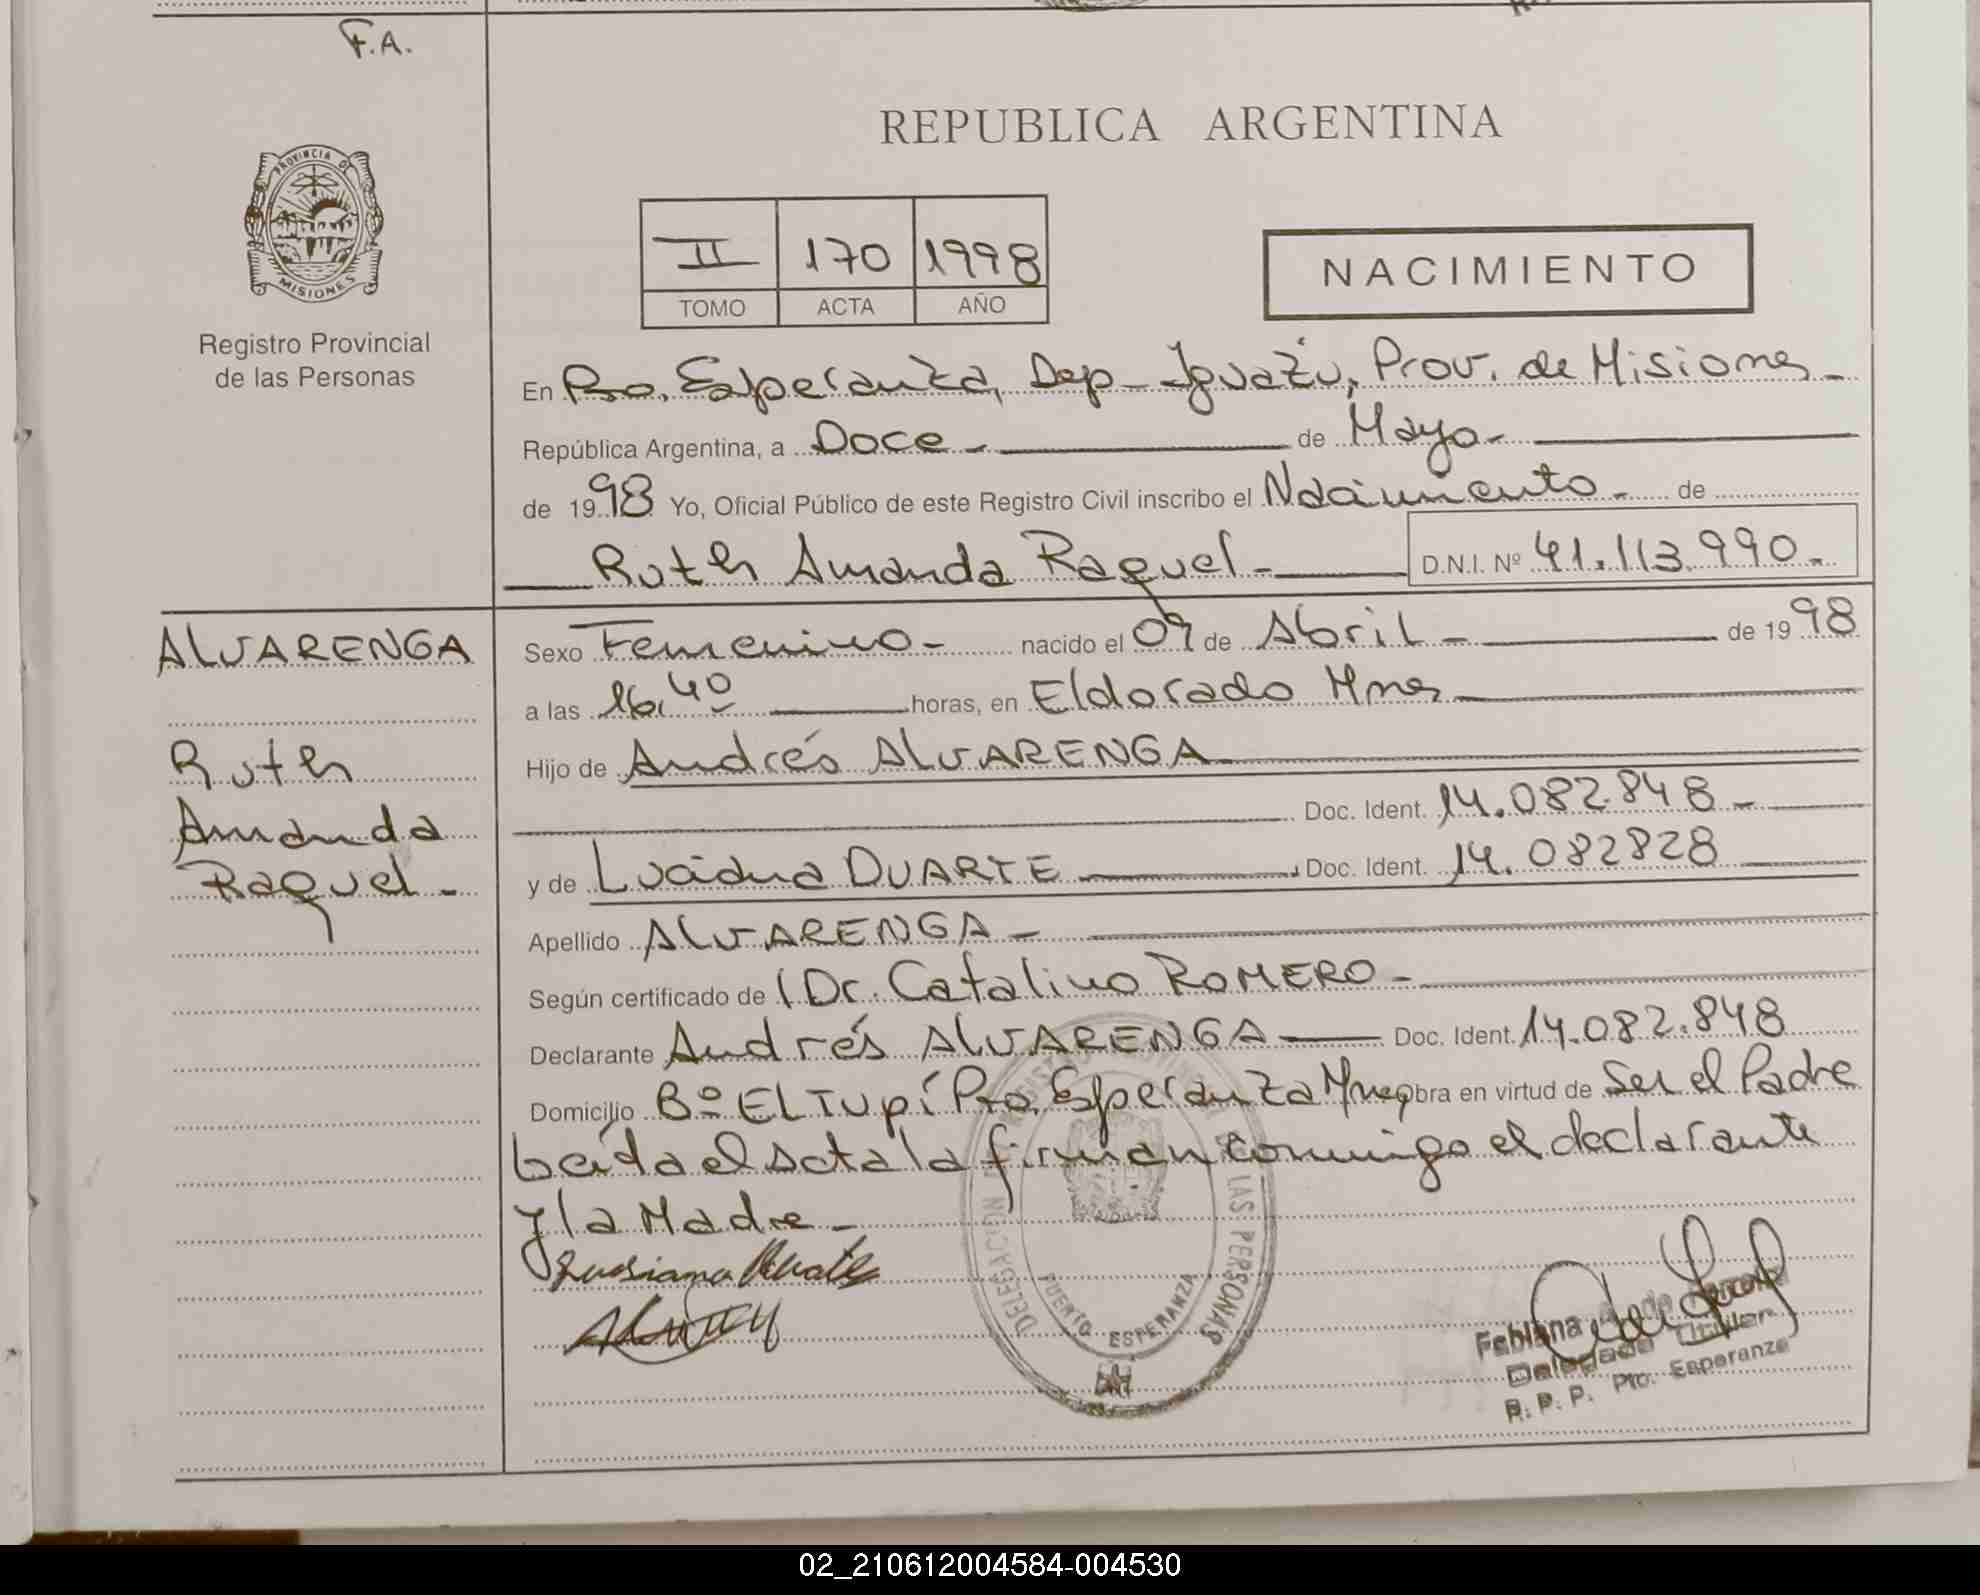 F.A.
REPUBLICA ARGENTINA
PROVINCIA DE
MISIONES
Registro Provincial
de las Personas
II 170 1998
TOMO ACTA AÑO
NACIMIENTO
En Pto. Esperanza, Dep- Iguazú, Prov. de Misiones-
República Argentina, a Doce- de Mayo-
de 1998 Yo, Oficial Público de este Registro Civil inscribo el Nacimiento- de
Ruth Amanda Raquel- D.N.I. Nº 41.113.990.-
ALVARENGA
Ruth
Amanda
Raquel-
Sexo Femenino- nacido el 09 de Abril- de 1998
a las 16,40 horas, en Eldorado Mnes
Hijo de Andrés ALVARENGA
Doc. Ident. 14.082.848-
y de Luciana DUARTE Doc. Ident. 14.082828
Apellido ALVARENGA-
Según certificado de (Dr. Catalino ROMERO-
Declarante Andrés ALVARENGA Doc. Ident. 14.082.848
Domicilio Bº EL TUPÍ Pto. Esperanza Mnes obra en virtud de Ser el Padre
Leída el acta la firman conmigo el declarante
y la Madre-
Lusiana Duarte
DELEGACION
LAS PERSONAS
PUERTO ESPERANZA
Fabiana
Delegada Titular
R. P. P. Pto. Esperanza
02_210612004584-004530